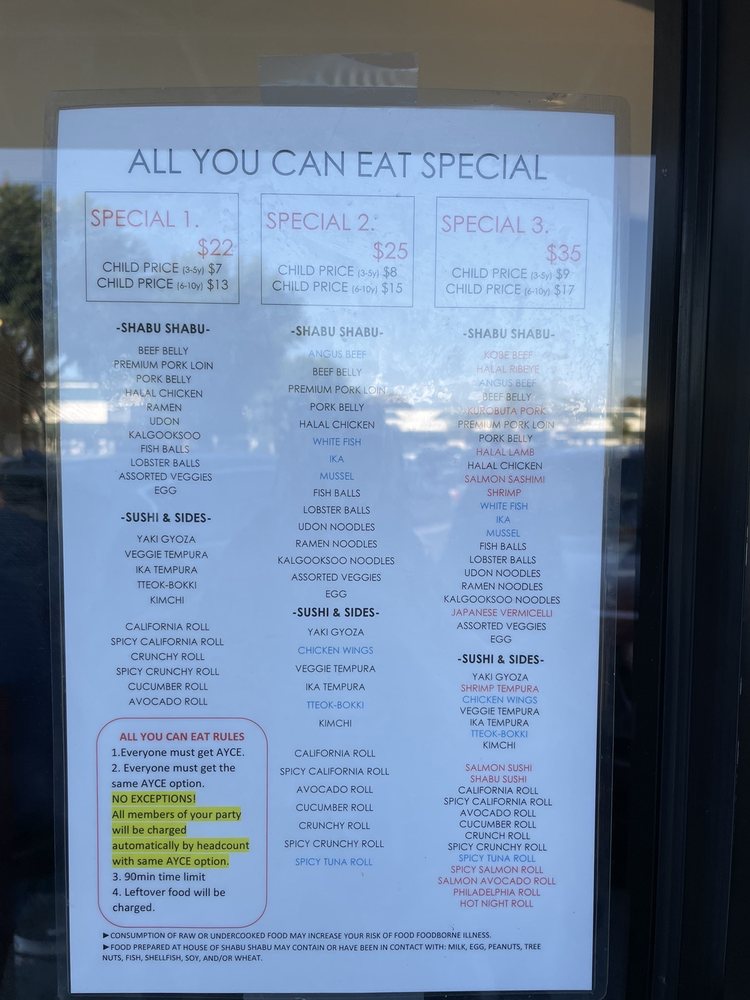 ALL YOU CAN EAT SPECIAL
SPECIAL 1.
$22
CHILD PRICE (3-5y) $7
CHILD PRICE (6-10y) $13
-SHABU SHABU-
BEEF BELLY
PREMIUM PORK LOIN
PORK BELLY
HALAL CHICKEN
RAMEN
UDON
KALGOOKSOO
FISH BALLS
LOBSTER BALLS
ASSORTED VEGGIES
EGG
-SUSHI & SIDES-
YAKI GYOZA
VEGGIE TEMPURA
IKA TEMPURA
TTEOK-BOKKI
KIMCHI
CALIFORNIA ROLL
SPICY CALIFORNIA ROLL
CRUNCHY ROLL
SPICY CRUNCHY ROLL
CUCUMBER ROLL
AVOCADO ROLL
ALL YOU CAN EAT RULES
1.Everyone must get AYCE.
2. Everyone must get the
same AYCE option.
NO EXCEPTIONS!
All members of your party
will be charged
automatically by headcount
with same AYCE option.
3. 90min time limit
4. Leftover food will be
charged.
SPECIAL 2.
$25
CHILD PRICE (3-5y) $8
CHILD PRICE (6-10y) $15
-SHABU SHABU-
ANGUS BEEF
BEEF BELLY
PREMIUM PORK LOIN
PORK BELLY
HALAL CHICKEN
WHITE FISH
IKA
MUSSEL
FISH BALLS
LOBSTER BALLS
UDON NOODLES
RAMEN NOODLES
KALGOOKSOO NOODLES
ASSORTED VEGGIES
EGG
-SUSHI & SIDES-
YAKI GYOZA
CHICKEN WINGS
VEGGIE TEMPURA
IKA TEMPURA
TTEOK-BOKKI
KIMCHI
CALIFORNIA ROLL
SPICY CALIFORNIA ROLL
AVOCADO ROLL
CUCUMBER ROLL
CRUNCHY ROLL
SPICY CRUNCHY ROLL
SPICY TUNA ROLL
SPECIAL 3.
$35
CHILD PRICE (3-5y) $9
CHILD PRICE (6-10y) $17
-SHABU SHABU-
KOBE BEEF
HALAL RIBEYE
ANGUS BEEF
BEEF BELLY
KUROBUTA PORK
PREMIUM PORK LOIN
PORK BELLY
HALAL LAMB
HALAL CHICKEN
SALMON SASHIMI
SHRIMP
WHITE FISH
IKA
MUSSEL
FISH BALLS
LOBSTER BALLS
UDON NOODLES
RAMEN NOODLES
KALGOOKSOO NOODLES
JAPANESE VERMICELLI
ASSORTED VEGGIES
EGG
-SUSHI & SIDES-
YAKI GYOZA
SHRIMP TEMPURA
CHICKEN WINGS
VEGGIE TEMPURA
IKA TEMPURA
TTEOK-BOKKI
KIMCHI
SALMON SUSHI
SHABU SUSHI
CALIFORNIA ROLL
SPICY CALIFORNIA ROLL
AVOCADO ROLL
CUCUMBER ROLL
CRUNCH ROLL
SPICY CRUNCHY ROLL
SPICY TUNA ROLL
SPICY SALMON ROLL
SALMON AVOCADO ROLL
PHILADELPHIA ROLL
HOT NIGHT ROLL
►CONSUMPTION OF RAW OR UNDERCOOKED FOOD MAY INCREASE YOUR RISK OF FOOD FOODBORNE ILLNESS.
►FOOD PREPARED AT HOUSE OF SHABU SHABU MAY CONTAIN OR HAVE BEEN IN CONTACT WITH: MILK, EGG, PEANUTS, TREE
NUTS, FISH, SHELLFISH, SOY, AND/OR WHEAT.